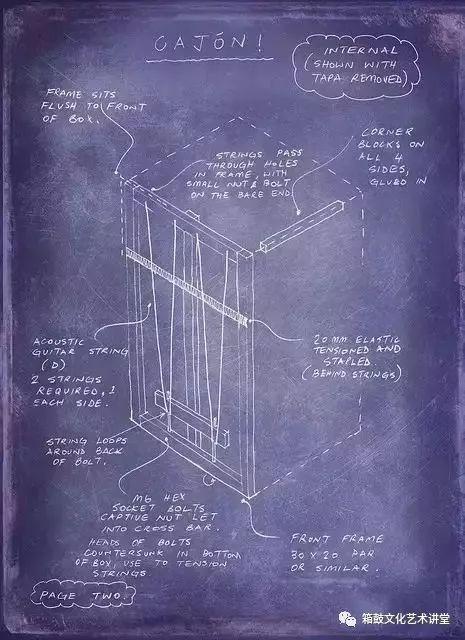 CAJÓN!
INTERNAL
(SHOWN WITH
TAPA REMOVED)
FRAME SITS
FLUSH TO FRONT
OF BOX.
STRINGS PASS
THROUGH HOLES
IN FRAME, WITH
SMALL NUT & BOLT
ON THE BARE END
CORNER
BLOCKS ON
ALL 4
SIDES,
GLUED IN
ACOUSTIC
GUITAR STRING
(D)
2 STRINGS
REQUIRED, 1
EACH SIDE.
20 MM ELASTIC
TENSIONED AND
STAPLED.
(BEHIND STRINGS)
STRING LOOPS
AROUND BACK
OF BOLT.
M6 HEX
SOCKET BOLTS
CAPTIVE NUT LET
INTO CROSS BAR.
HEADS OF BOLTS
COUNTERSUNK IN BOTTOM
OF BOX, USE TO TENSION
STRINGS
FRONT FRAME
30 X 20 PAR
OR SIMILAR.
PAGE TWO.
箱鼓文化艺术讲堂